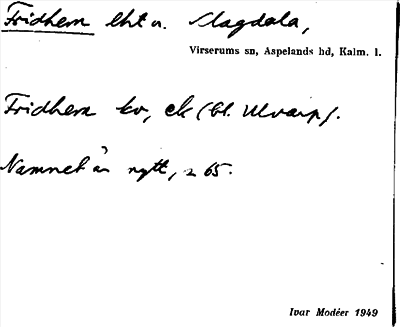 Fridhem lht u. Magdala,
Virserums sn, Aspelands hd, Kalm. l.
Fridhem kv, ek (bl. Ulvarp).
Namnet är nytt, 265.
Ivar Modéer 1949